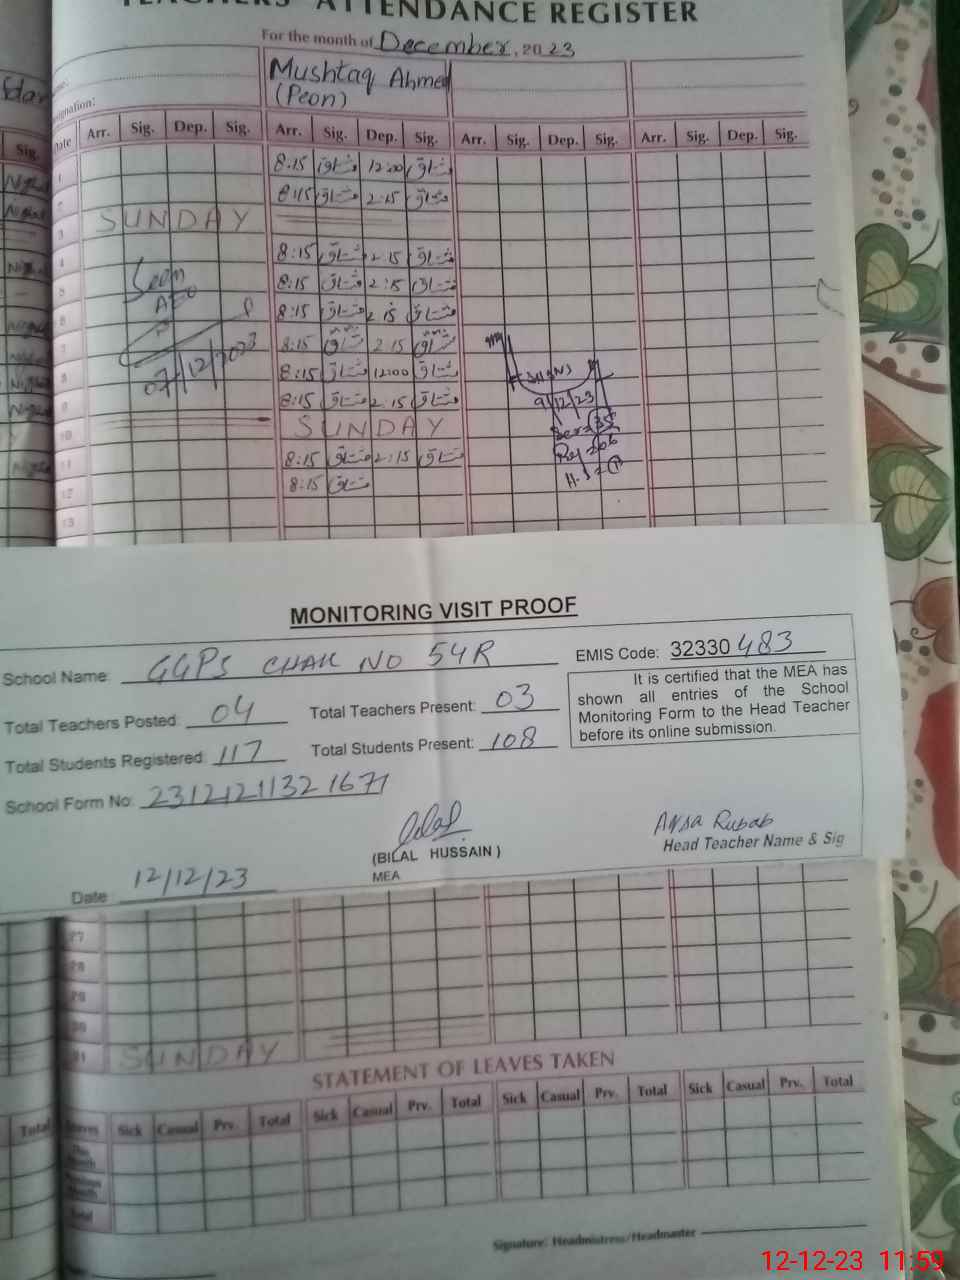 TEACHERS' ATTENDANCE REGISTER
For the month of December, 2023
Mushtaq Ahmed
(Peon)
Date Arr. Sig. Dep. Sig. Arr. Sig. Dep. Sig. Arr. Sig. Dep. Sig. Arr. Sig. Dep. Sig.
1 8:15 مشتاق 12:00 مشتاق
2 8:15 مشتاق 2:15 مشتاق
3 SUNDAY
4 8:15 مشتاق 2:15 مشتاق
5 8:15 مشتاق 2:15 مشتاق
6 8:15 مشتاق 2:15 مشتاق
7 8:15 مشتاق 2:15 مشتاق
8 8:15 مشتاق 12:00 مشتاق
9 8:15 مشتاق 2:15 مشتاق
10 SUNDAY
11 8:15 مشتاق 2:15 مشتاق
12 8:15 مشتاق
13
Seen
AEO
07/12/2023
9/12/23
MONITORING VISIT PROOF
School Name: GGPS CHAK NO 54R
EMIS Code: 32330483
Total Teachers Posted: 04 Total Teachers Present: 03
Total Students Registered: 117 Total Students Present: 108
It is certified that the MEA has
shown all entries of the School
Monitoring Form to the Head Teacher
before its online submission.
School Form No:
(BILAL HUSSAIN)
MEA
Arsa Rubab
Head Teacher Name & Sig
Date: 12/12/23
27
28
29
30
31 SUNDAY
STATEMENT OF LEAVES TAKEN
Total Leaves Sick Casual Prv. Total Sick Casual Prv. Total Sick Casual Prv. Total Sick Casual Prv. Total
This
Month
Month
Total
Signature: Headmistress/Headmaster
12-12-23 11:59